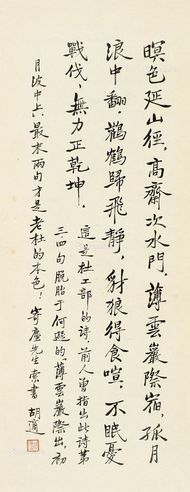 暝色延山徑，高齋次水門，薄雲巖際宿，孤月
浪中翻，鸛鶴歸飛靜，豺狼得食喧，不眠憂
戰伐，無力正乾坤，
這是杜工部的詩，前人曾指出此詩第
三四句脫胎于何遜的薄雲巖際出，初
月波中上，最末兩句才是老杜的本色！寄廬先生索書 胡適